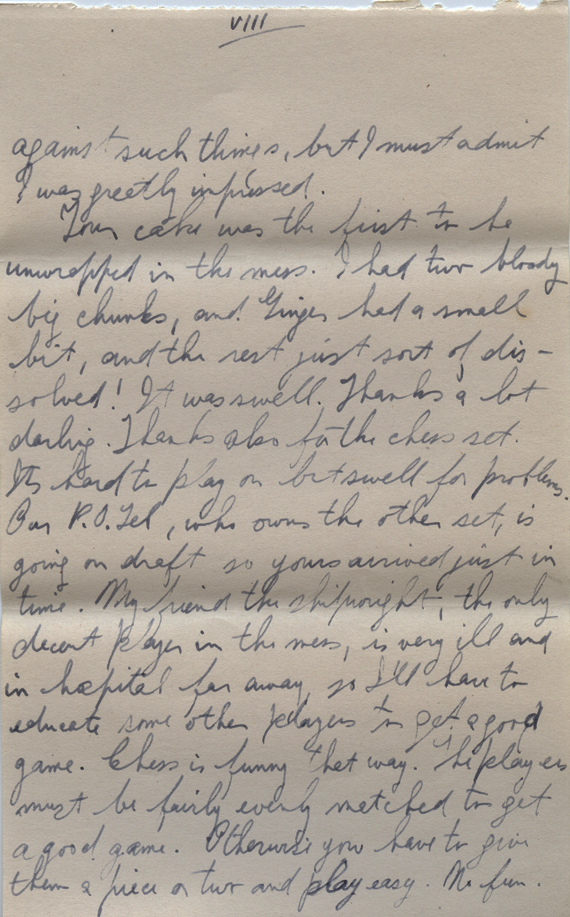 VIII
against such things, but I must admit
I was greatly impressed.
Your cake was the first to be
unwrapped in the mess. I had two bloody
big chunks, and Ginger had a small
bit, and the rest just sort of dis-
solved! It was swell. Thanks a lot
darling. Thanks also for the chess set.
Its hard to play on but swell for problems.
Our P.O. Tel, who owns the other set, is
going on draft so yours arrived just in
time. My friend the shipwright, the only
decent player in the mess, is very ill and
in hospital far away, so I'll have to
educate some other players to get a good
game. Chess is funny that way. The players
must be fairly evenly matched to get
a good game. Otherwise you have to give
them a piece or two and play easy. No fun.